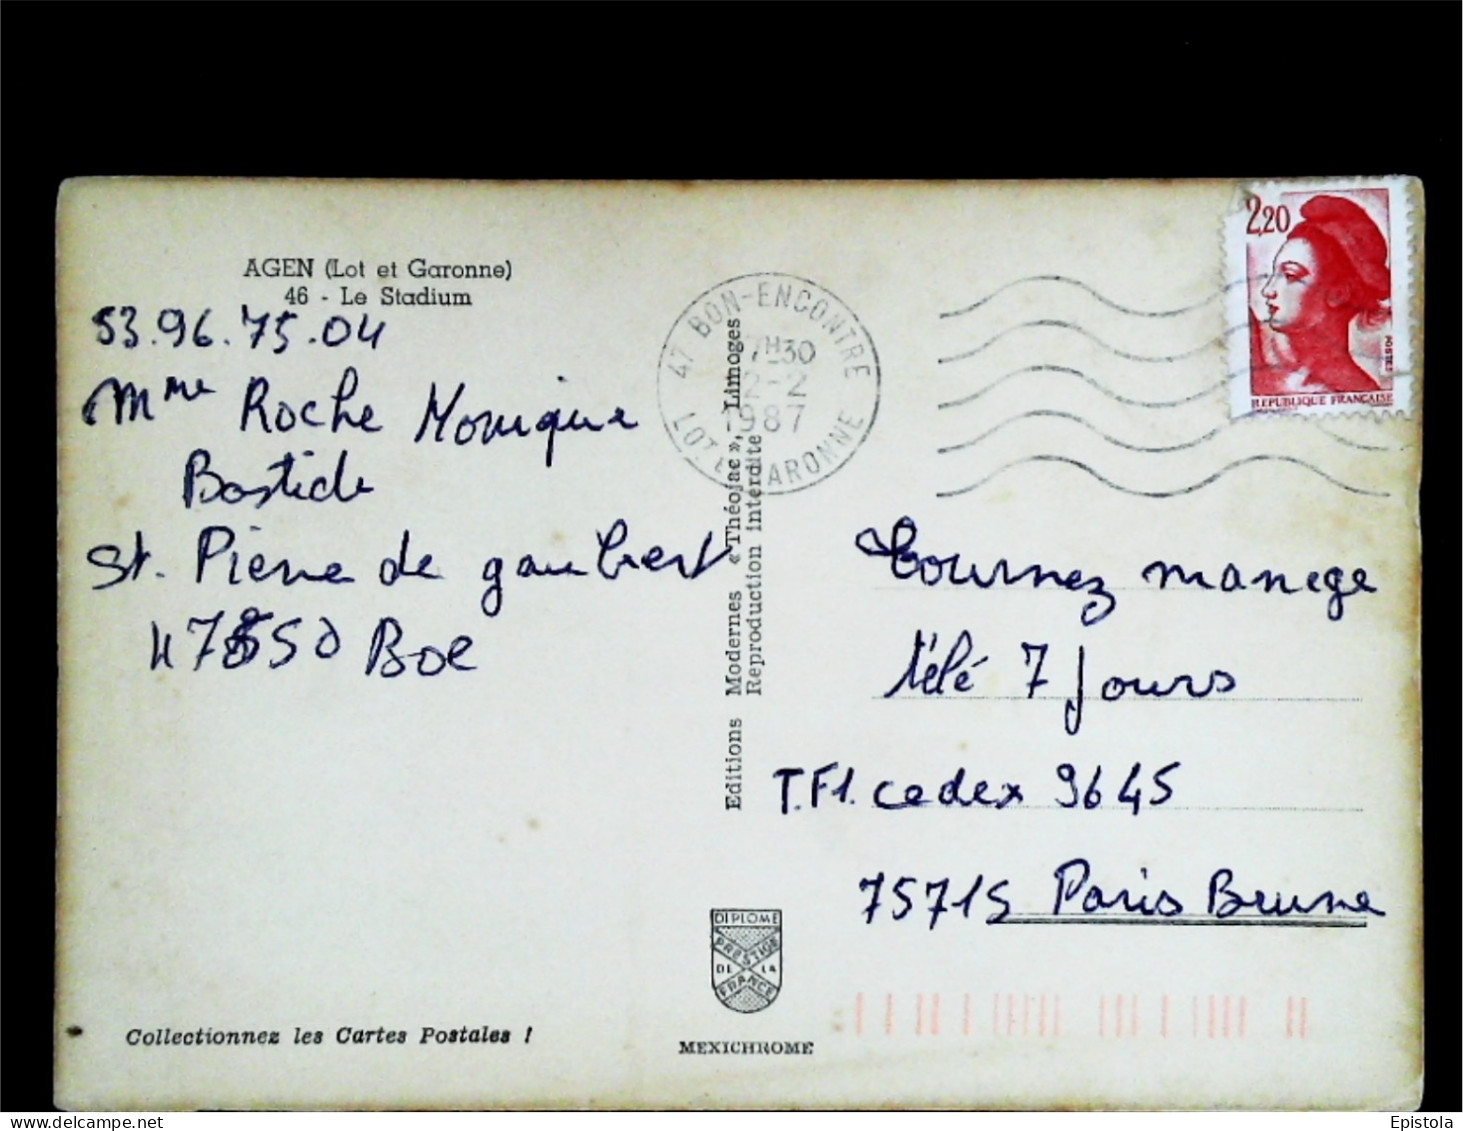 AGEN (Lot et Garonne)
46 - Le Stadium
53.96.75.04
Mme Roche Monique
Bastide
St. Pierre de gaubert
47550 Boe
Collectionnez les Cartes Postales !
Editions Modernes « Théojac », Limoges
Reproduction interdite
47 BON-ENCONTRE
17H30
2-2
1987
LOT ET GARONNE
2,20
POSTES
REPUBLIQUE FRANÇAISE
tournez manege
télé 7 Jours
T.F1. cedex 9645
75715 Paris Brune
DIPLOME
PRESTIGE
DE LA
FRANCE
MEXICHROME
Epistola